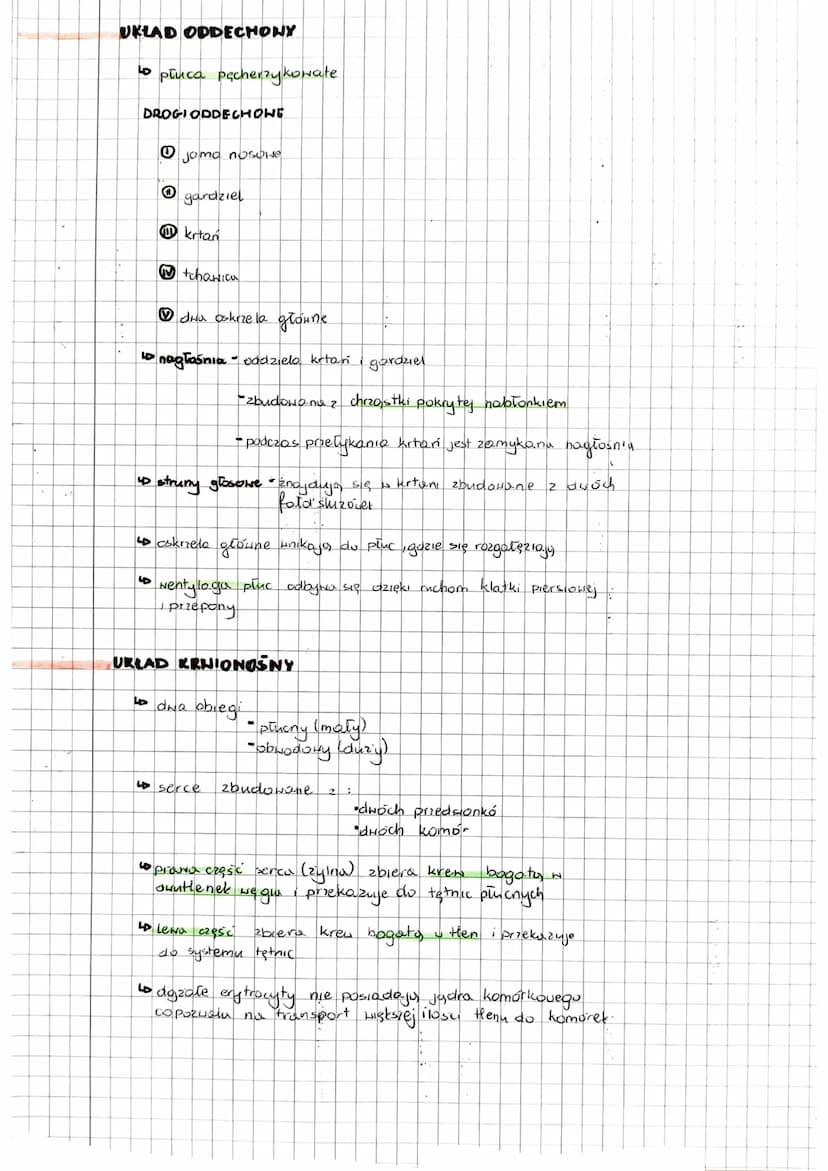 UKŁAD ODDECHOWY
↳ płuca pęcherzykowate
DROGI ODDECHOWE
I jama nosowa
II gardziel
III krtań
IV tchawica
V dwa oskrzela główne
↳ nagłośnia - oddziela krtań i gardziel
- zbudowana z chrząstki pokrytej nabłonkiem
- podczas przełykania krtań jest zamykana nagłośnią
↳ struny głosowe - znajdują się w krtani zbudowane z dwóch
fałd śluzówek
↳ oskrzela główne wnikają do płuc, gdzie się rozgałęziają
↳ wentylacja płuc odbywa się dzięki ruchom klatki piersiowej
i przepony
UKŁAD KRWIONOŚNY
↳ dwa obiegi
- płucny (mały)
- obwodowy (duży)
↳ serce zbudowane z :
• dwóch przedsionkó
• dwóch komór
↳ prawa część serca (żylna) zbiera krew bogatą w
dwutlenek węgla i przekazuje do tętnic płucnych
↳ lewa część zbiera krew bogatą w tlen i przekazuje
do systemu tętnic
↳ dojrzałe erytrocyty nie posiadają jądra komórkowego
co pozwala na transport większej ilości tlenu do komórek